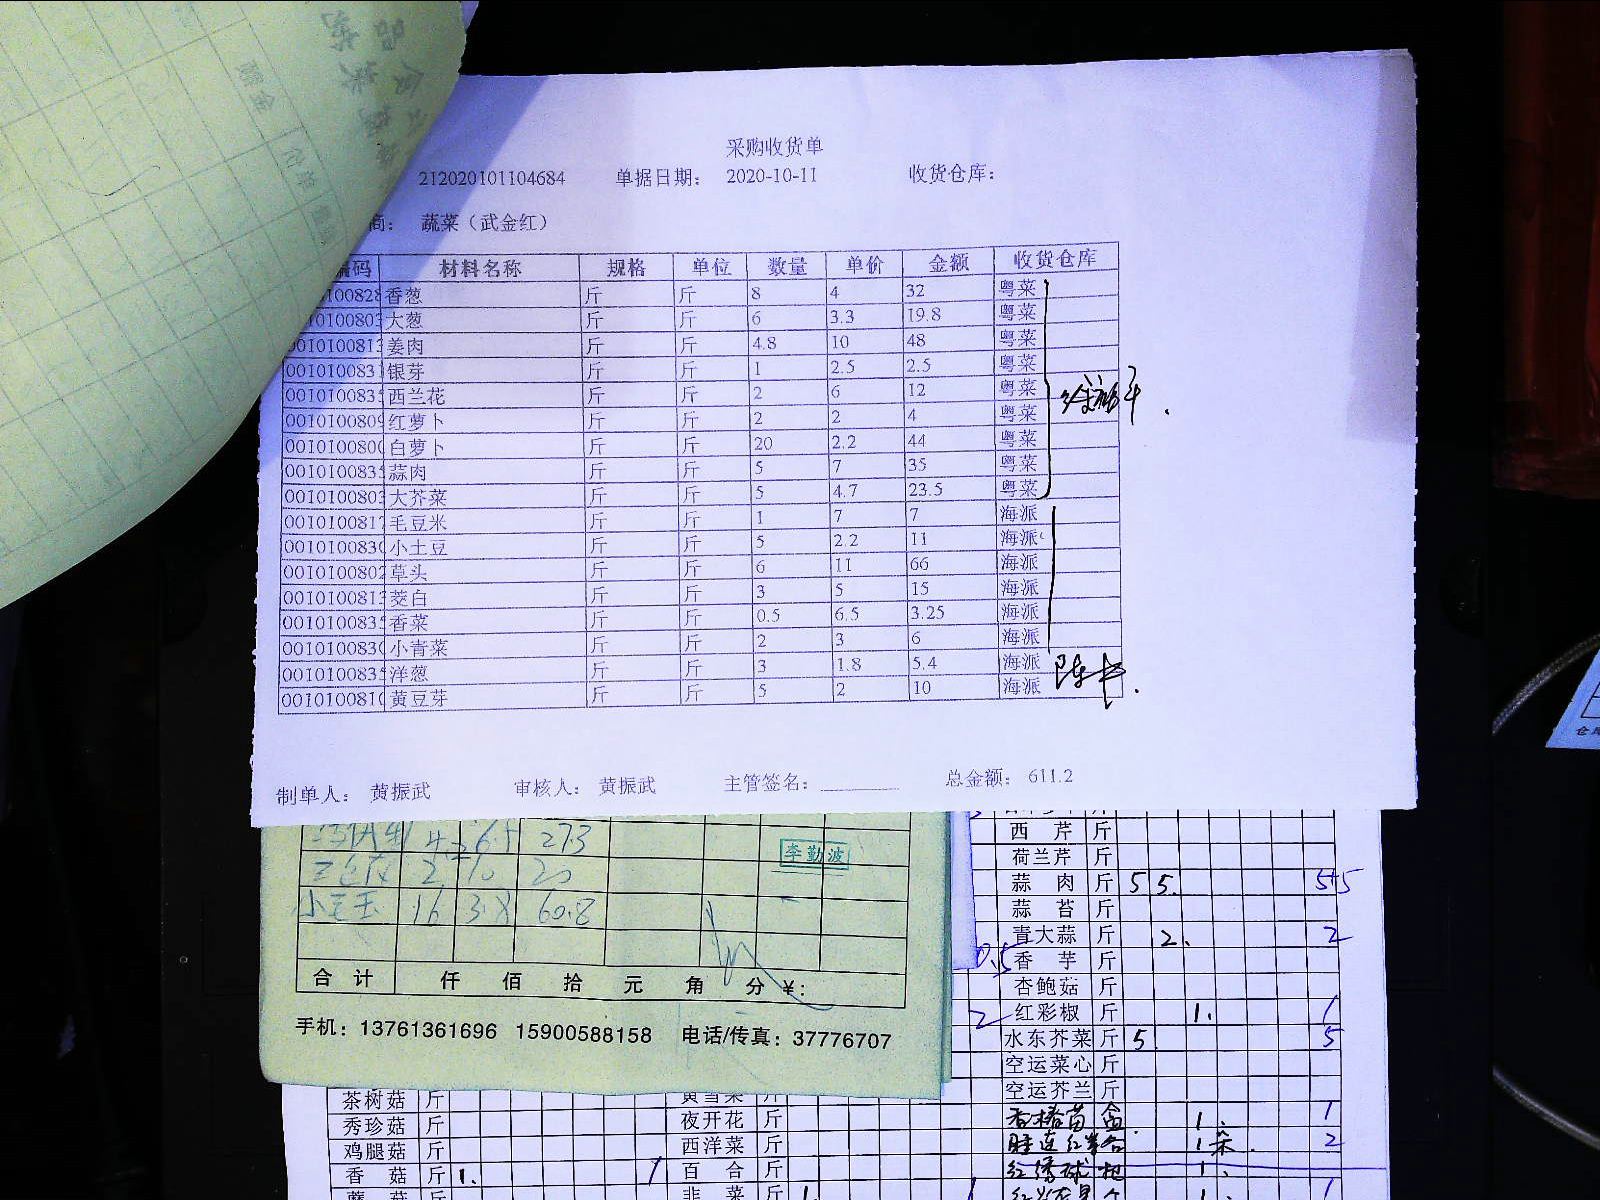 采购收货单
212020101104684 单据日期: 2020-10-11 收货仓库:
商: 蔬菜（武金红）
编码 材料名称 规格 单位 数量 单价 金额 收货仓库
100828 香葱 斤 斤 8 4 32 粤菜
010100803 大葱 斤 斤 6 3.3 19.8 粤菜
0010100813 姜肉 斤 斤 4.8 10 48 粤菜
001010083 银芽 斤 斤 1 2.5 2.5 粤菜
001010083 西兰花 斤 斤 2 6 12 粤菜
0010100809 红萝卜 斤 斤 2 2 4 粤菜
0010100800 白萝卜 斤 斤 20 2.2 44 粤菜
001010083 蒜肉 斤 斤 5 7 35 粤菜
0010100803 大芥菜 斤 斤 5 4.7 23.5 粤菜
0010100817 毛豆米 斤 斤 1 7 7 海派
0010100830 小土豆 斤 斤 5 2.2 11 海派
0010100802 草头 斤 斤 6 11 66 海派
0010100813 茭白 斤 斤 3 5 15 海派
001010083 香菜 斤 斤 0.5 6.5 3.25 海派
0010100830 小青菜 斤 斤 2 3 6 海派
001010083 洋葱 斤 斤 3 1.8 5.4 海派
0010100810 黄豆芽 斤 斤 5 2 10 海派
制单人: 黄振武 审核人: 黄振武 主管签名: 总金额: 611.2
4.2 6.5 273
李勤波
2 10 20
小毛玉 16 3.8 60.8
合计 仟 佰 拾 元 角 分 ¥:
手机: 13761361696 15900588158 电话/传真: 37776707
西芹 斤
荷兰芹 斤
蒜肉 斤 5 5. 5+5
蒜苔 斤
青大蒜 斤 2. 2
0.5 香芋 斤
杏鲍菇 斤
2 红彩椒 斤 1. 1
水东芥菜 斤 5. 5
空运菜心 斤
空运芥兰 斤
香椿苗 盒 1. 1
2
红绣球 1.
茶树菇 斤
秀珍菇 斤 夜开花 斤
鸡腿菇 斤 西洋菜 斤
香菇 斤 1. 1 百合 斤
韭菜 斤 1.